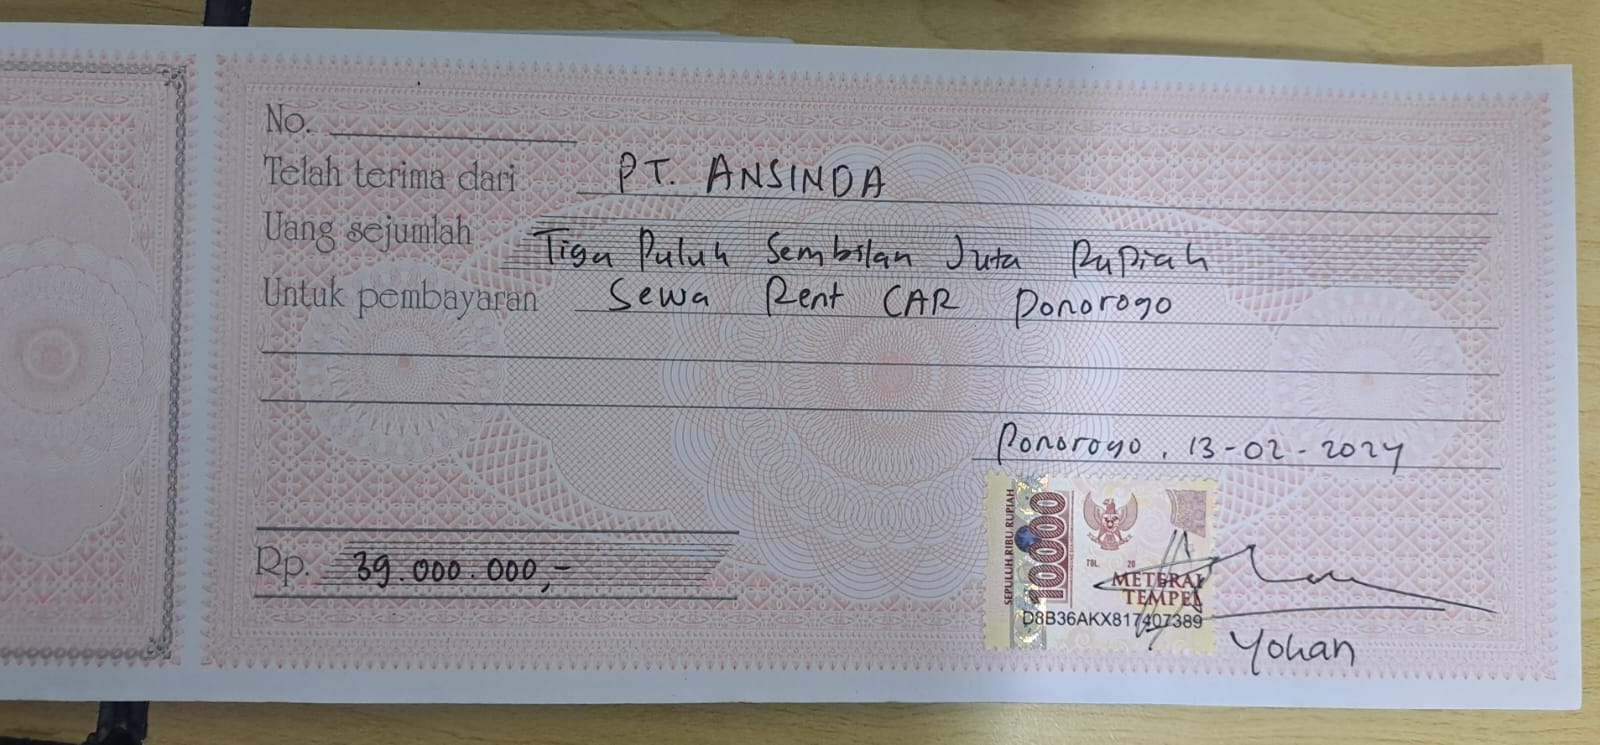 No.
Telah terima dari PT. ANSINDA
Uang sejumlah Tiga Puluh Sembilan Juta Rupiah
Untuk pembayaran Sewa Rent CAR Ponorogo
Ponorogo, 13-02-2024
Rp. 39.000.000,-
SEPULUH RIBU RUPIAH
10000
TGL. 20
METERAI
TEMPEL
D8B36AKX817407389
Yohan